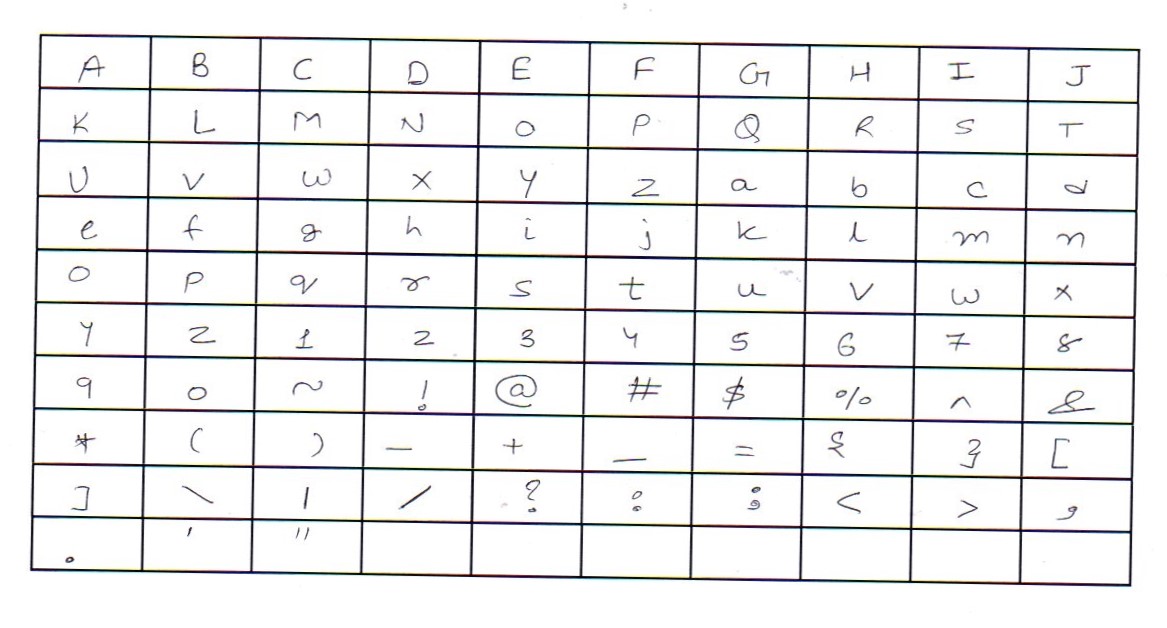 A B C D E F G H I J
K L M N O P Q R S T
U V W X Y Z a b c d
e f g h i j k l m n
o p q r s t u v w x
y z 1 2 3 4 5 6 7 8
9 0 ~ ! @ # $ % ^ &
* ( ) - + _ = { } [
] \ | / ? : ; < > ,
. ' "